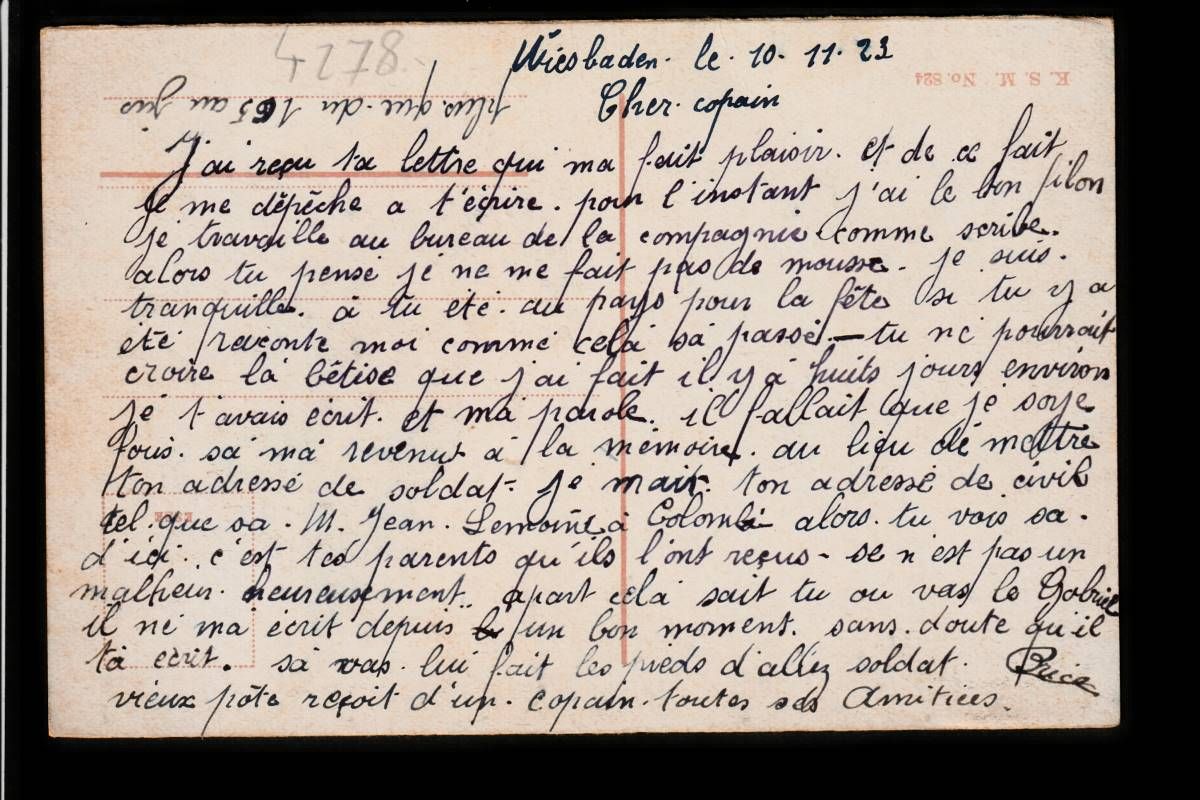 4278
Wiesbaden. le. 10. 11. 23
K. S. M. No. 824
plus. que. du 165 au jus
Cher. copain
J'ai reçu ta lettre qui ma fait plaisir. et de ce fait
je me dépêche a t'écrire. pour l'instant j'ai le bon filon
je travaille au bureau de la compagnie. comme scribe.
alors tu pense je ne me fait pas de mousse. je suis.
tranquille. à tu été. au pays pour la fête si tu y a
été raconte moi comme cela sà passé — tu ne pourrait
croire la bêtise que j'ai fait il y à huits jours environ
je t'avais écrit. et ma parole. il fallait que je soye
fous. sà mà revenut à la mémoire. au lieu de mettre
ton adresse de soldat. je mait. ton adresse de civil
tel. que sa. M. Jean. Lemoine à Colombé alors. tu vois sa.
d'ici. c'est tes parents qu'ils l'ont reçus - se n'est pas un
malheur. heureusement.. apart celà sait tu ou vas le Gabriel
il ne ma écrit depuis un bon moment. sans. doute qu'il
tà écrit. sà vas. lui fait les pieds d'allez soldat.
vieux pôte reçoit d'un. copain. toutes ses Amitiées.